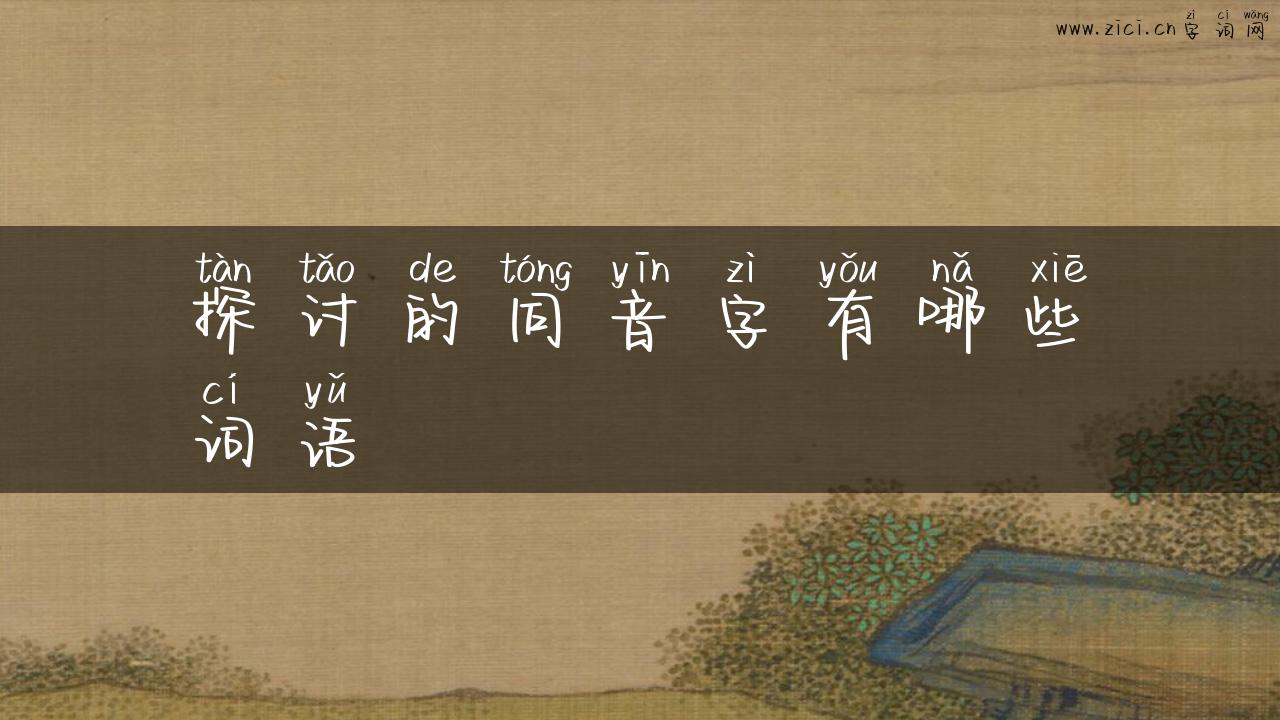 zì cí wǎng
www.zici.cn字词网
tàn tǎo de tóng yīn zì yǒu nǎ xiē
探讨的同音字有哪些
cí yǔ
词语